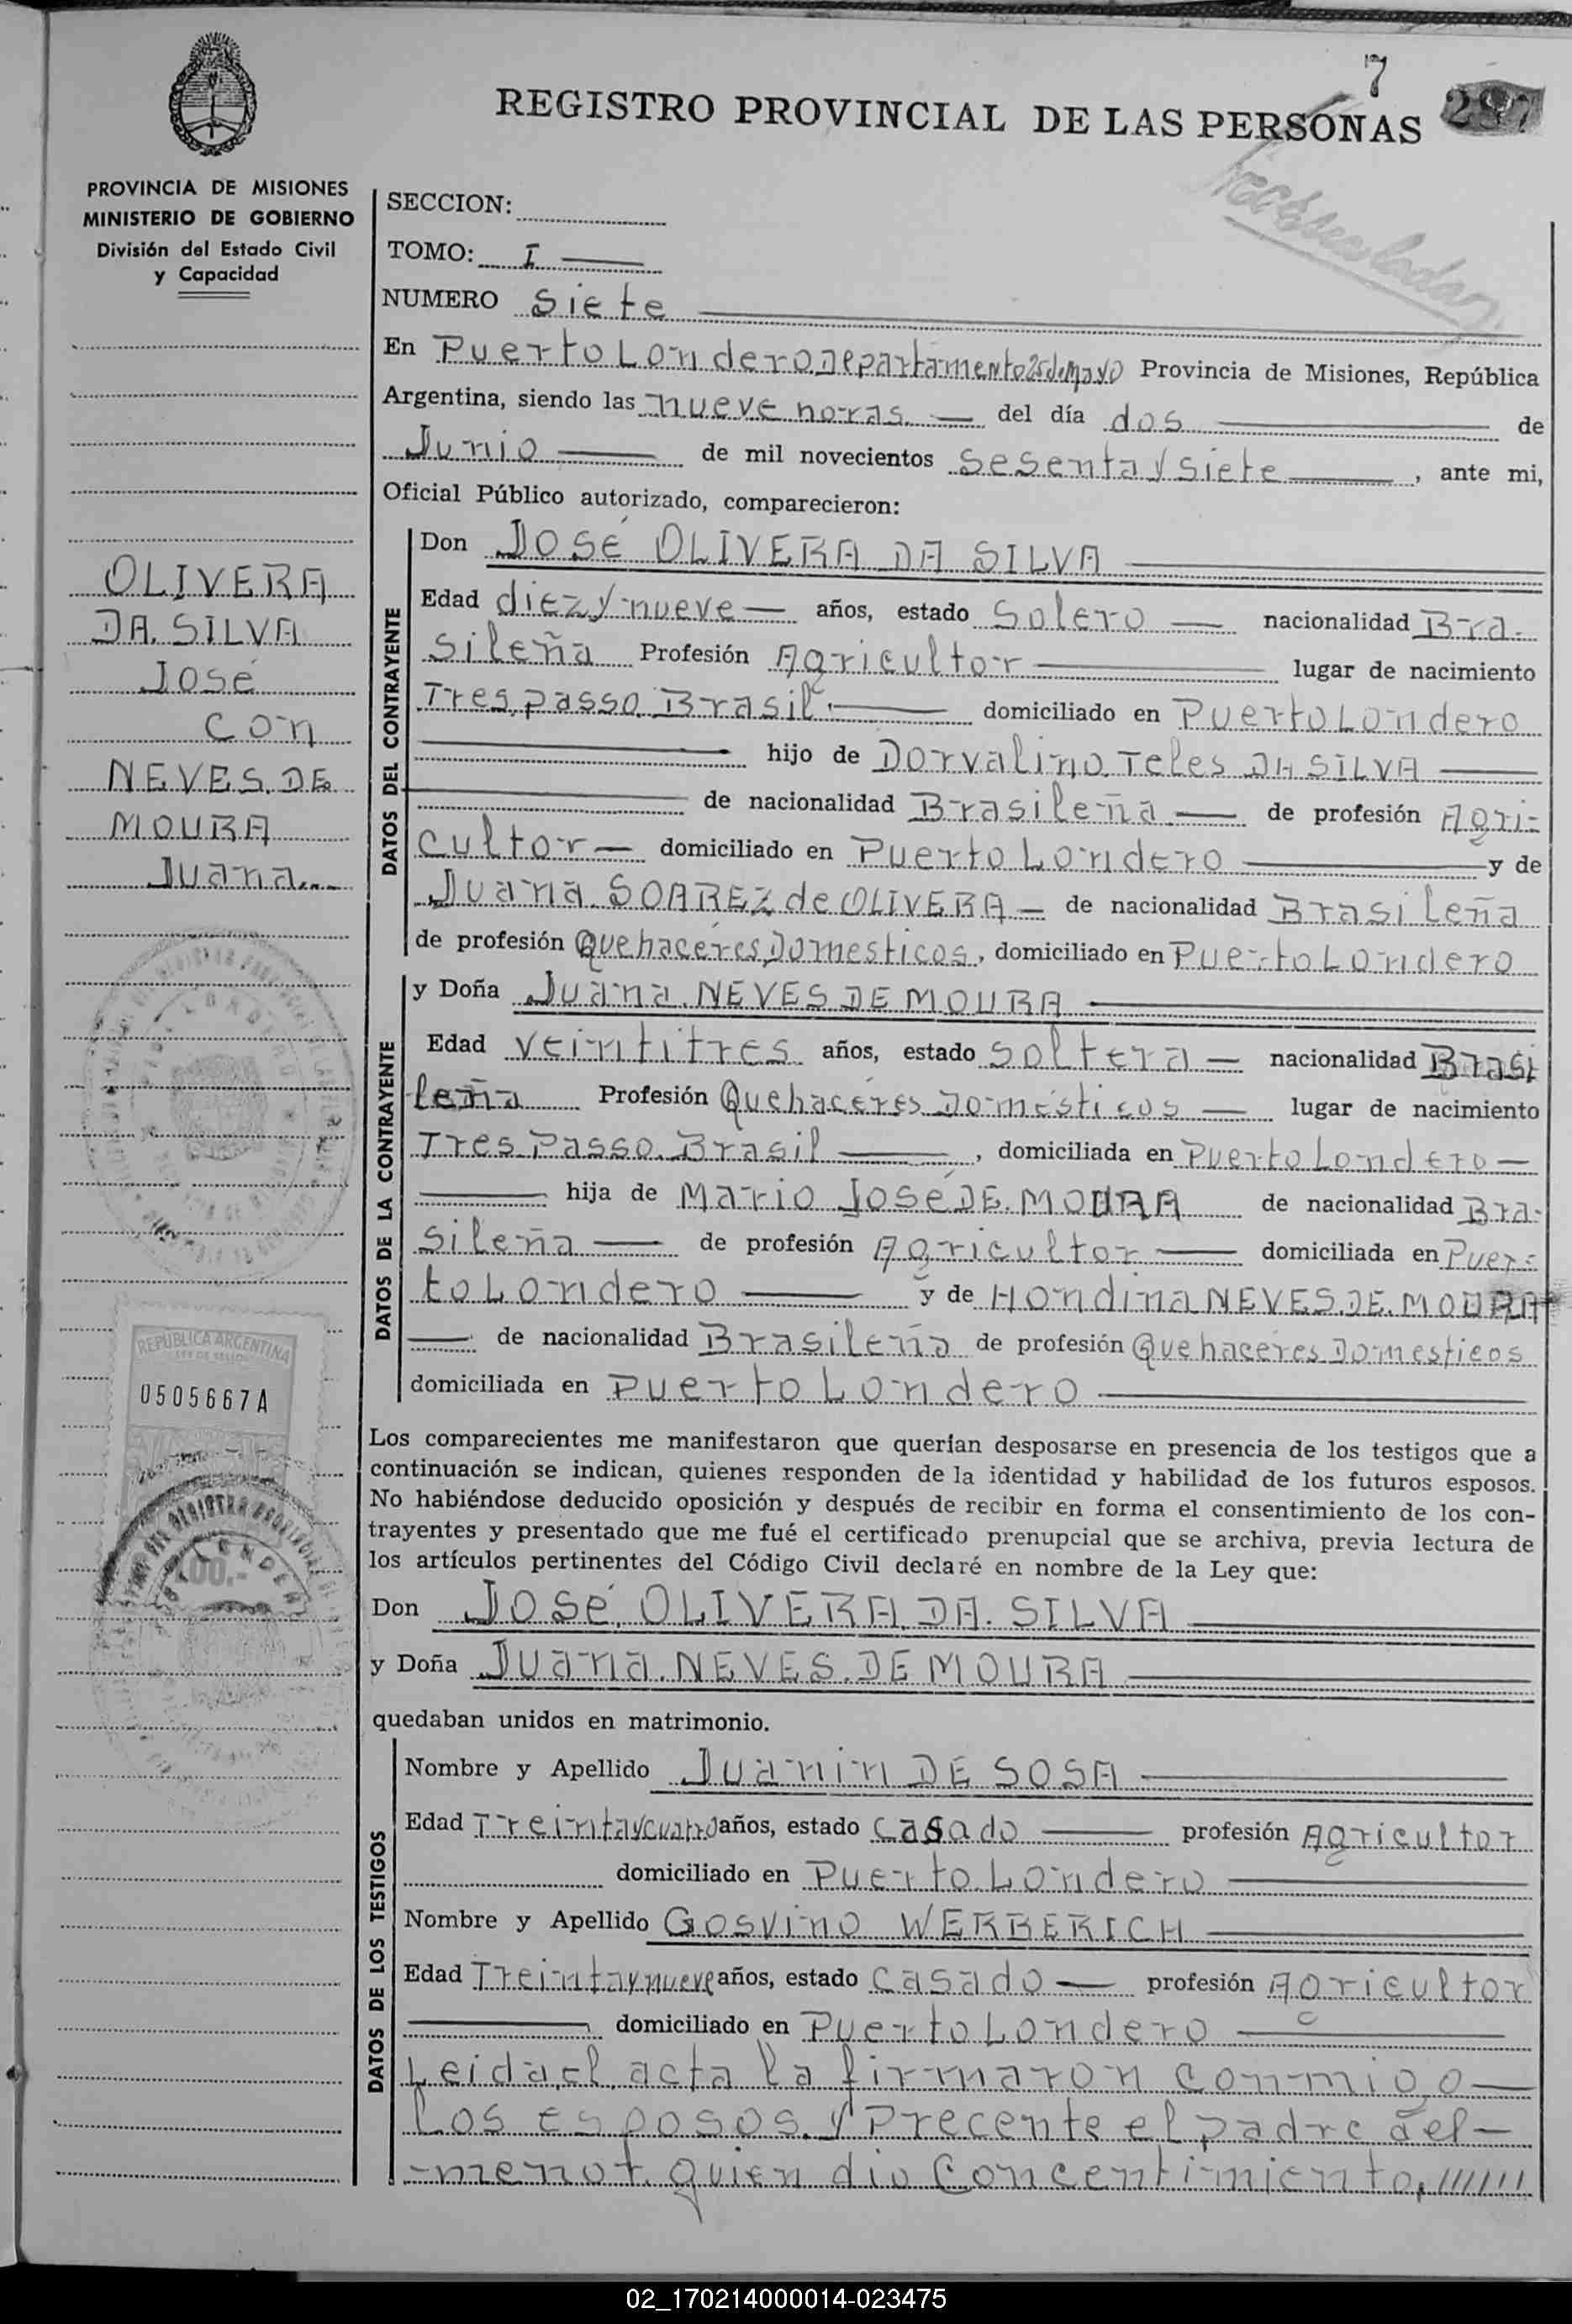 7
297
REGISTRO PROVINCIAL DE LAS PERSONAS
PROVINCIA DE MISIONES
MINISTERIO DE GOBIERNO
División del Estado Civil
y Capacidad
SECCION:
TOMO: I
NUMERO Siete
En Puerto Londero Departamento 25 de Mayo Provincia de Misiones, República
Argentina, siendo las nueve horas del día dos de
Junio de mil novecientos Sesenta y siete, ante mi,
Oficial Público autorizado, comparecieron:
OLIVERA
DA SILVA
José
con
NEVES DE
MOURA
Juana
DATOS DEL CONTRAYENTE
Don José OLIVERA DA SILVA
Edad diez y nueve años, estado Solero nacionalidad Bra-
sileña Profesión Agricultor lugar de nacimiento
Tres passo Brasil domiciliado en Puerto Londero
hijo de Dorvalino Teles DA SILVA
de nacionalidad Brasileña de profesión Agri-
cultor domiciliado en Puerto Londero y de
Juana SOAREZ de OLIVERA de nacionalidad Brasileña
de profesión Quehacéres Domesticos, domiciliado en Puerto Londero
DATOS DE LA CONTRAYENTE
y Doña Juana NEVES DE MOURA
Edad veintitres años, estado soltera nacionalidad Brasi
leña Profesión Quehacéres Domésticos lugar de nacimiento
Tres Passo Brasil, domiciliada en Puerto Londero
hija de Mario José DE MOURA de nacionalidad Bra-
sileña de profesión Agricultor domiciliada en Puer-
to Londero y de Hondina NEVES DE MOURA
de nacionalidad Brasileña de profesión Quehacéres Domesticos
domiciliada en Puerto Londero
REPUBLICA ARGENTINA
LEY DE SELLOS
0505667A
100.-
Los comparecientes me manifestaron que querían desposarse en presencia de los testigos que a
continuación se indican, quienes responden de la identidad y habilidad de los futuros esposos.
No habiéndose deducido oposición y después de recibir en forma el consentimiento de los con-
trayentes y presentado que me fué el certificado prenupcial que se archiva, previa lectura de
los artículos pertinentes del Código Civil declaré en nombre de la Ley que:
Don José OLIVERA DA SILVA
y Doña Juana NEVES DE MOURA
quedaban unidos en matrimonio.
DATOS DE LOS TESTIGOS
Nombre y Apellido Juanin DE SOSA
Edad Treinta y cuatro años, estado casado profesión Agricultor
domiciliado en Puerto Londero
Nombre y Apellido Gosvino WERBERICH
Edad Treinta y nueve años, estado casado profesión Agricultor
domiciliado en Puerto Londero
Leida el acta la firmaron conmigo
los esposos y Precente el padre del
menor quien dio Concentimiento,///////
02_170214000014-023475